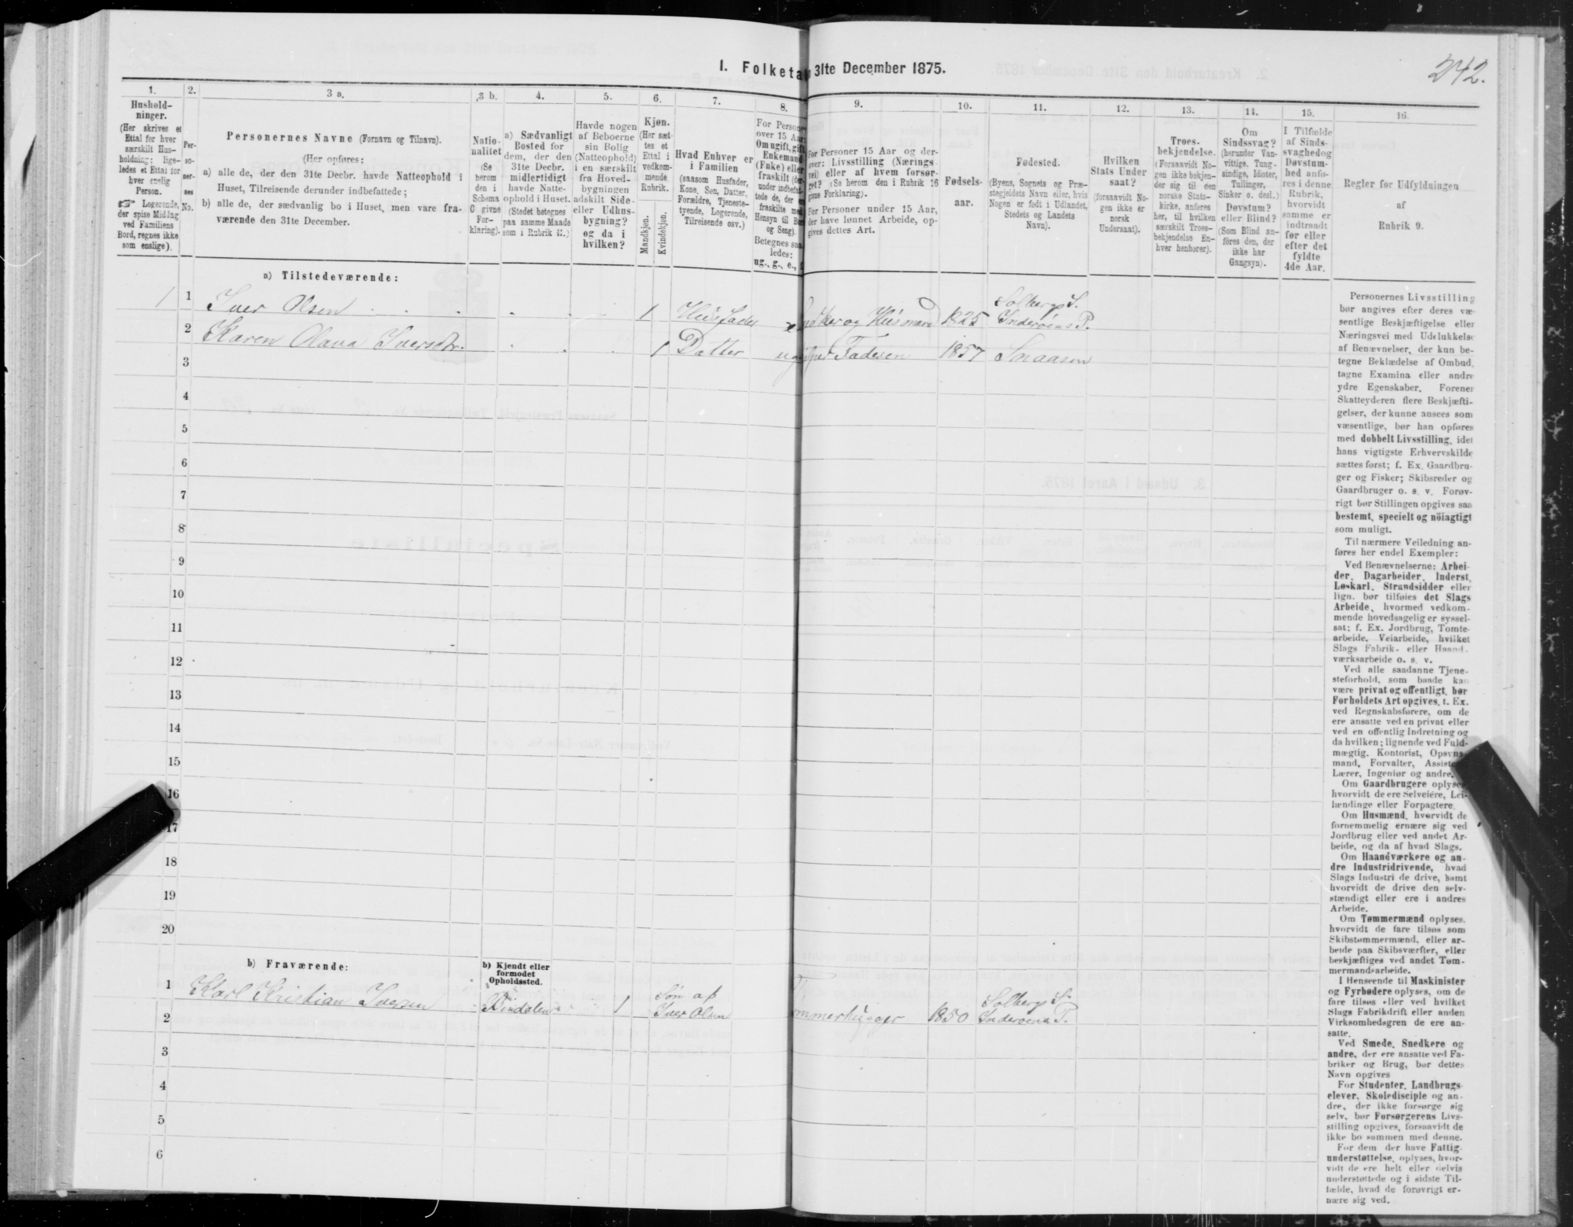 242.
1. Folketa 31te December 1875.
1. 2. 3 a. 3 b. 4. 5. 6. 7. 8. 9. 10. 11. 12. 13. 14. 15. 16.
Hushold-
ninger.
(Her skrives et
Ettal for hver
særskilt Hus-
holdning; lige-
ledes et Ettal for
hver enslig
Person.
Logerende,
der spise Middag
ved Familiens
Bord, regnes ikke
som enslige).
Per-
so-
ner-
nes
No.
Personernes Navne (Fornavn og Tilnavn).
(Her opføres:
a) alle de, der den 31te Decbr. havde Natteophold i
Huset, Tilreisende derunder indbefattede;
b) alle de, der sædvanlig bo i Huset, men vare fra-
værende den 31te December.
Natio-
nalitet
(Se
herom
den i
Schema
O givne
For-
klaring).
a) Sædvanligt
Bosted for
dem, der den
31te Decbr.
midlertidigt
havde Natte-
ophold i Huset.
(Stedet betegnes
paa samme Maade
som i Rubrik 11.)
Havde nogen
af Beboerne
sin Bolig
(Natteophold)
i en særskilt
fra Hoved-
bygningen
adskilt Side-
eller Udhus-
bygning?
og da i
hvilken?
Kjøn.
(Her sæt-
tes et
Ettal i
vedkom-
mende
Rubrik.
Mandkjøn.
Kvindekjøn.
Hvad Enhver er
i Familien
(saasom Husfader,
Kone, Søn, Datter,
Forældre, Tjeneste-
tyende, Logerende,
Tilreisende osv.)
For Person
over 15 Aa
Om ugift, gif
Enkemand
(Enke) elle
fraskilt (de
under indbefat
tede de, der e
fraskilte med
Hensyn til Bo
og Seng).
Betegnes saa
ledes:
ug., g., e., f
For Personer 15 Aar og der-
over: Livsstilling (Nærings-
vei) eller af hvem forsør-
get? (Se herom den i Rubrik 16
givne Forklaring).
For Personer under 15 Aar,
der have lønnet Arbeide, op-
gives dettes Art.
Fødsels-
aar.
Fødested.
(Byens, Sognets og Præ-
stegjeldets Navn eller, hvis
Nogen er født i Udlandet,
Stedets og Landets
Navn).
Hvilken
Stats Under
saat?
(forsaavidt No-
gen ikke er
norsk
Undersaat).
Troes-
bekjendelse.
(Forsaavidt No-
gen ikke bekjen-
der sig til den
norske Stats-
kirke, anføres
her, til hvilken
særskilt Troes-
bekjendelse En-
hver henhører).
Om
Sindssvag?
(herunder Van-
vittige, Tung-
sindige, Idioter,
Tullinger,
Sinker o. desl.)
Døvstum?
eller Blind?
(Som Blind an-
føres den, der
ikke har
Gangsyn).
I Tilfælde
af Sinds-
svaghedog
Døvstum-
hed anfø-
res i denne
Rubrik,
hvorvidt
samme er
indtraadt
før eller
efter det
fyldte
4de Aar.
Regler for Udfyldningen
af
Rubrik 9.
a) Tilstedeværende:
1 1 Iver Olsen 1 Husfader Husmand 1825 Solbergs S.
Inderøens P.
2 Karen Olava Iversdtr. 1 Datter ug Faderen 1857 Snaasen
3
4
5
6
7
8
9
10
11
12
13
14
15
16
17
18
19
20
b) Fraværende:
b) Kjendt eller
formodet
Opholdssted.
1 Karl Kristian Iversen Bindalen 1 Søn af
Iver Olsen mmerhugger 1850 Solbergs S.
Inderøens P.
2
3
4
5
6
Personernes Livsstilling
bør angives efter deres væ-
sentlige Beskjæftigelse eller
Næringsvei med Udelukkelse
af Benævnelser, der kun be-
tegne Beklædelse af Ombud,
tagne Examina eller andre
ydre Egenskaber. Forener
Skatteyderen flere Beskjæfti-
gelser, der kunne ansees som
væsentlige, bør han opføres
med dobbelt Livsstilling, idet
hans vigtigste Erhvervskilde
sættes først; f. Ex. Gaardbru-
ger og Fisker; Skibsreder og
Gaardbruger o. s. v. Forøv-
rigt bør Stillingen opgives saa
bestemt, specielt og nöiagtigt
som muligt.
Til nærmere Veiledning an-
føres her endel Exempler:
Ved Benævnelserne: Arbei-
der, Dagarbeider, Inderst,
Løskarl, Strandsidder eller
lign. bør tilføies det Slags
Arbeide, hvormed vedkom-
mende hovedsagelig er syssel-
sat; f. Ex. Jordbrug, Tomte-
arbeide, Veiarbeide, hvilket
Slags Fabrik- eller Haand-
værksarbeide o. s. v.
Ved alle saadanne Tjene-
steforhold, som baade kan
være privat og offentligt, bør
Forholdets Art opgives, t. Ex.
ved Regnskabsførere, om de
ere ansatte ved en privat eller
ved en offentlig Indretning og
da hvilken; lignende ved Fuld-
mægtig, Kontorist, Opsyns-
mand, Forvalter, Assiste
Lærer, Ingeniør og andre.
Om Gaardbrugere oplyses
hvorvidt de ere Selveiere, Lei-
lændinge eller Forpagtere.
Om Husmænd, hvorvidt de
fornemmelig ernære sig ved
Jordbrug eller ved andet Ar-
beide, og da af hvad Slags.
Om Haandværkere og an-
dre Industridrivende, hvad
Slags Industri de drive, samt
hvorvidt de drive den selv-
stændigt eller ere i andres
Arbeide.
Om Tømmermænd oplyses,
hvorvidt de fare tilsøs som
Skibstømmermænd, eller ar-
beide paa Skibsværfter, eller
beskjæftiges ved andet Tøm-
mermandsarbeide.
I Henseende til Maskinister
og Fyrbødere oplyses, om de
fare tilsøs eller ved hvilket
Slags Fabrikdrift eller anden
Virksomhedsgren de ere an-
satte.
Ved Smede, Snedkere og
andre, der ere ansatte ved Fa-
briker og Brug, bør dettes
Navn opgives
For Studenter, Landbrugs-
elever, Skoledisciple og an-
dre, der ikke forsørge sig
selv, bør Forsørgerens Livs-
stilling opgives, forsaavidt de
ikke bo sammen med denne.
For dem der have Fattig-
understøttelse, oplyses, hvor-
vidt de ere helt eller delvis
understøttede og i sidste Til-
fælde, hvad de forøvrigt er-
nære sig ved.